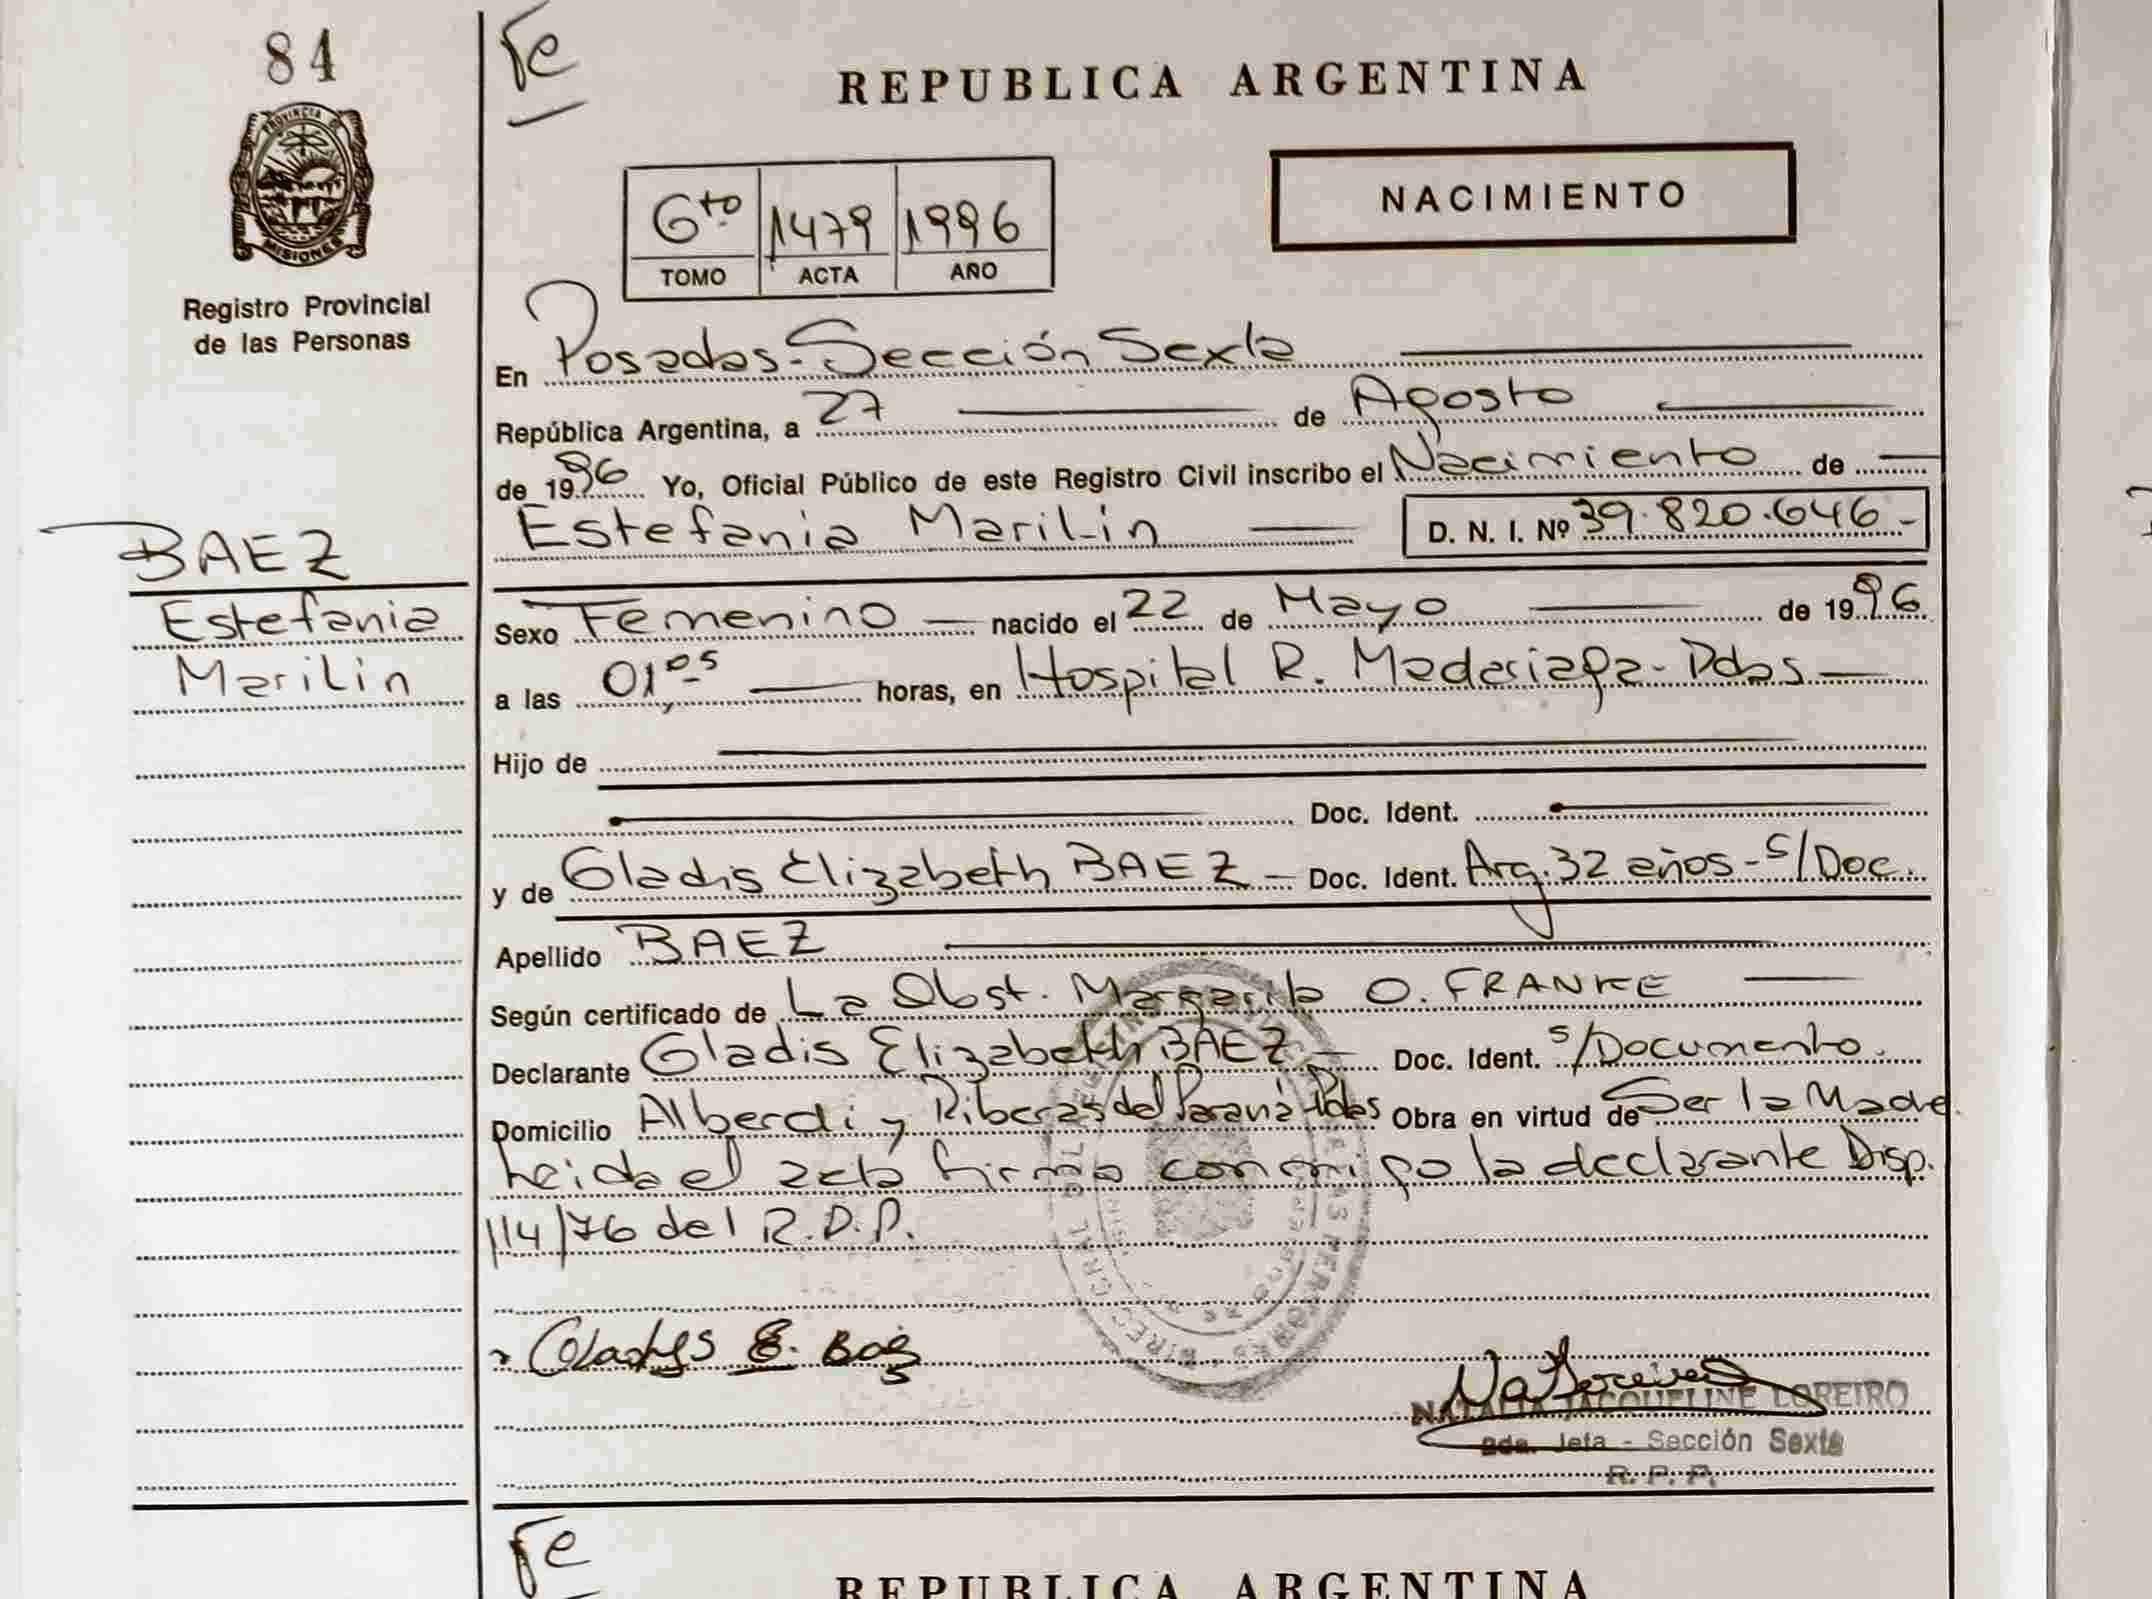 84
Fe
REPUBLICA ARGENTINA
PROVINCIA DE
MISIONES
Registro Provincial
de las Personas
6to 1479 1996
TOMO ACTA AÑO
NACIMIENTO
En Posadas-Sección Sexta
República Argentina, a 27 de Agosto
de 1996 Yo, Oficial Público de este Registro Civil inscribo el Nacimiento de
Estefania Marilin D. N. I. Nº 39.820.646-
BAEZ
Estefania
Marilin
Sexo Femenino nacido el 22 de Mayo de 1996
a las 01,05 horas, en Hospital R. Madariaga-Pdas
Hijo de
Doc. Ident.
y de Gladis Elizabeth BAEZ Doc. Ident. Arg. 32 años-s/Doc.
Apellido BAEZ
Según certificado de La Obst. Margarita O. FRANKE
Declarante Gladis Elizabeth BAEZ Doc. Ident. s/Documento.
Domicilio Alberdi y Riberas del Paraná Pdas Obra en virtud de Ser la Madre.
Leida el acta firma conmigo la declarante Disp.
114/76 del R.D.P.
Gladys E. Baez
NATALIA JACQUELINE LOREIRO
2da. Jefa - Sección Sexta
R. P. P.
Fe
REPUBLICA ARGENTINA